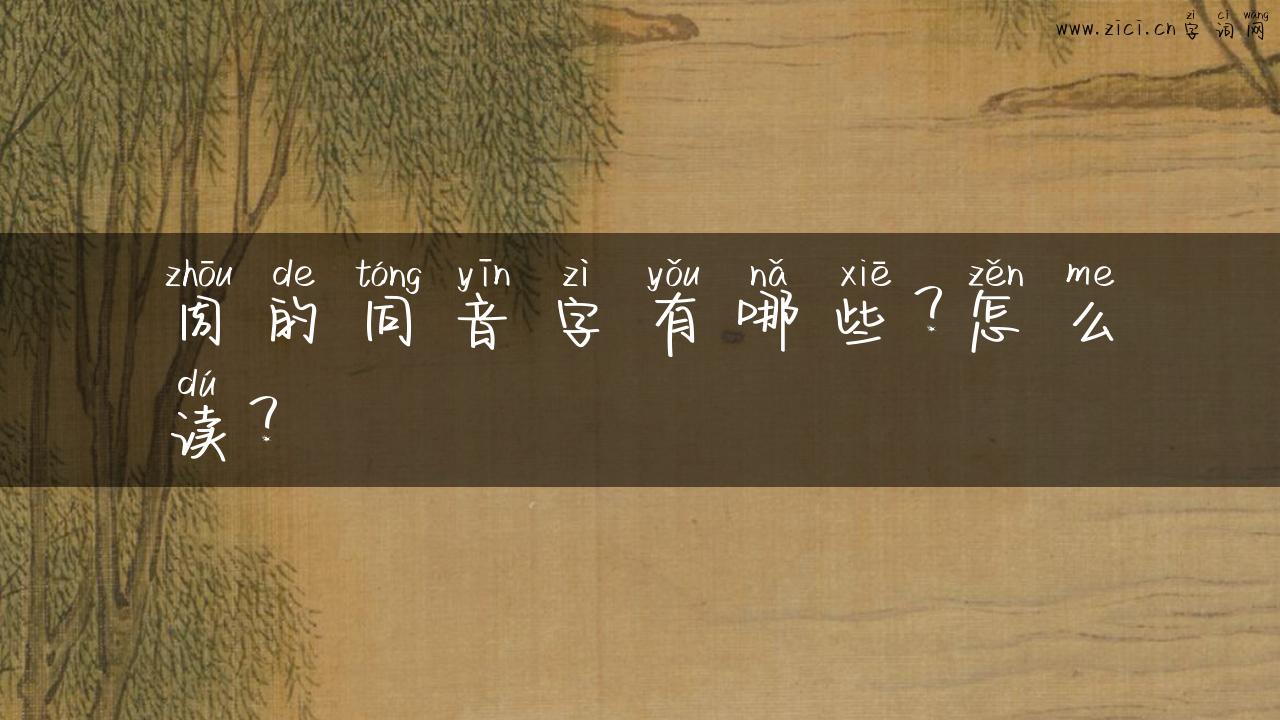 zì cí wǎng
www.zici.cn 字词网
zhōu de tóng yīn zì yǒu nǎ xiē zěn me
周的同音字有哪些？怎么
dú
读？